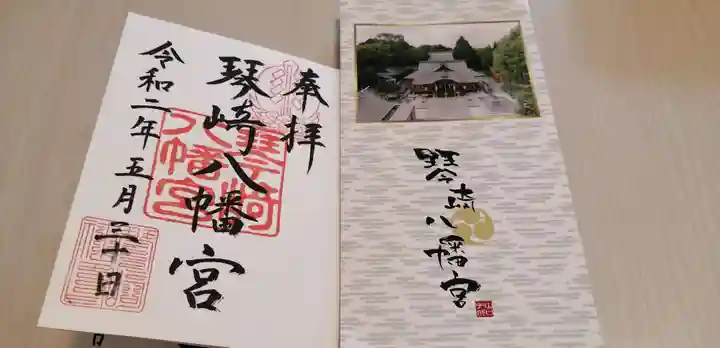 奉拝
琴崎八幡宮
令和二年五月三十日
琴崎八幡宮
琴崎八幡宮